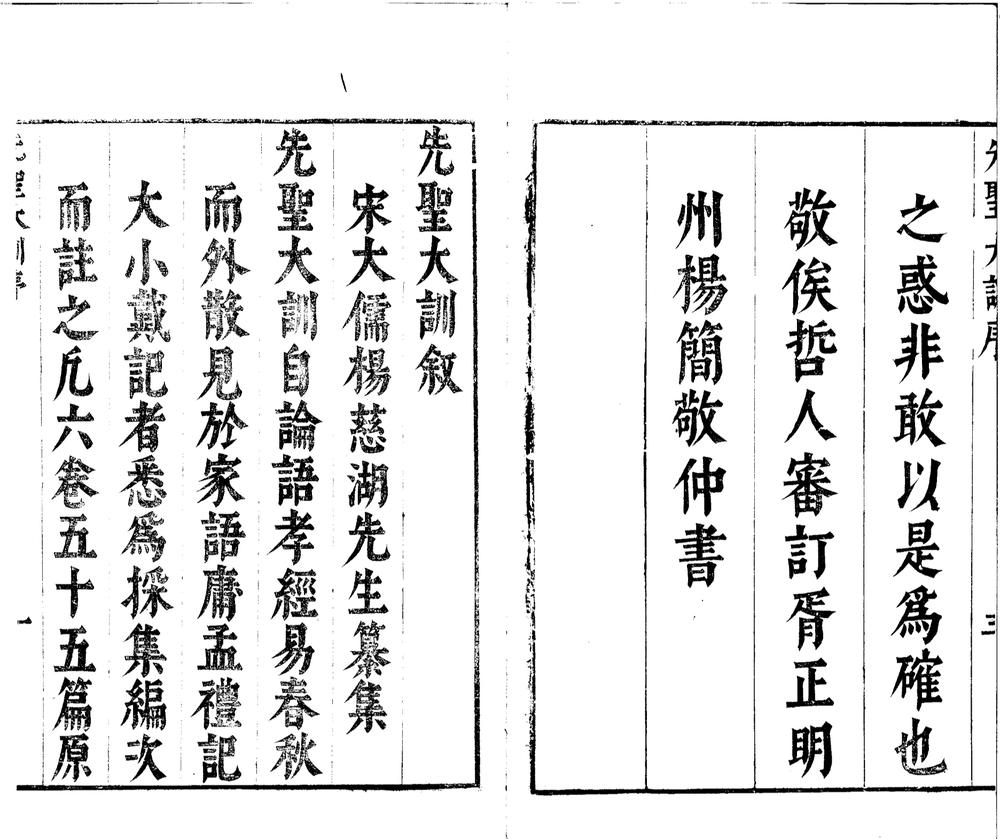 之惑非敢以是爲確也
敬俟哲人審訂胥正明
州楊簡敬仲書
先聖大訓叙
宋大儒楊慈湖先生纂集
先聖大訓自論語孝經易春秋
而外散見於家語庸孟禮記
大小戴記者悉爲採集編次
而註之凡六卷五十五篇原
一